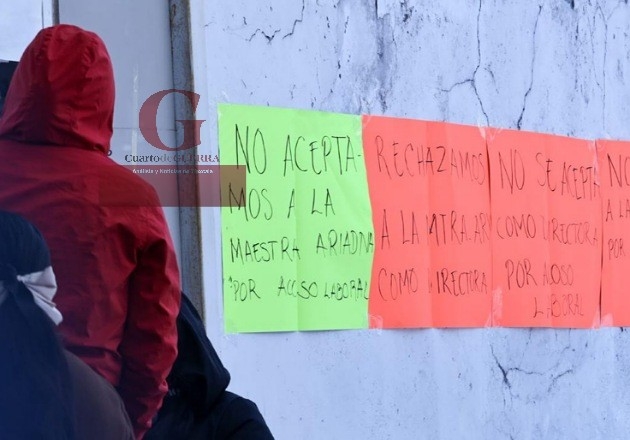 CuartodeGUERRA
NO ACEPTA-
MOS A LA
MAESTRA ARIADNA
POR ACOSO LABORAL
RECHAZAMOS
A LA MTRA. AR
COMO DIRECTORA
NO SE ACEPTA
COMO DIRECTORA
POR ACOSO
LABORAL
A LA
POR